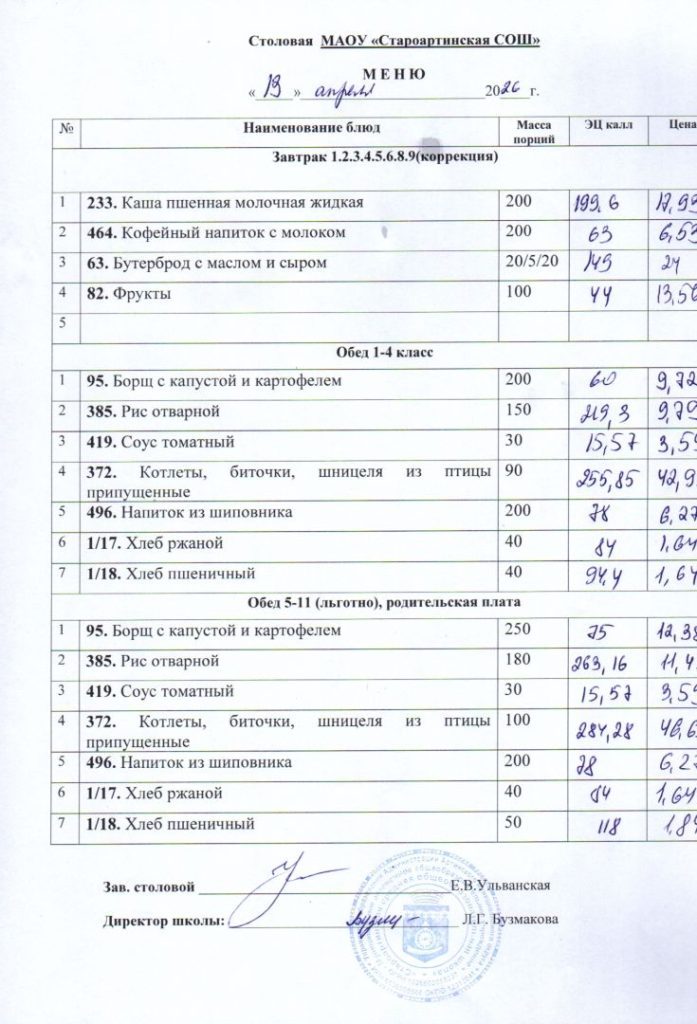 Столовая МАОУ «Староартинская СОШ»
МЕНЮ
« 13 » апреля 2026 г.
№ Наименование блюд Масса порций ЭЦ калл Цена
Завтрак 1.2.3.4.5.6.8.9(коррекция)
1 233. Каша пшенная молочная жидкая 200 199,6 17,99
2 464. Кофейный напиток с молоком 200 63 6,53
3 63. Бутерброд с маслом и сыром 20/5/20 149 24
4 82. Фрукты 100 44 13,56
5
Обед 1-4 класс
1 95. Борщ с капустой и картофелем 200 60 9,72
2 385. Рис отварной 150 219,3 9,79
3 419. Соус томатный 30 15,57 3,59
4 372. Котлеты, биточки, шницеля из птицы 90 255,85 42,9
припущенные
5 496. Напиток из шиповника 200 78 6,27
6 1/17. Хлеб ржаной 40 84 1,64
7 1/18. Хлеб пшеничный 40 94,4 1,64
Обед 5-11 (льготно), родительская плата
1 95. Борщ с капустой и картофелем 250 75 12,38
2 385. Рис отварной 180 263,16 11,4
3 419. Соус томатный 30 15,57 3,59
4 372. Котлеты, биточки, шницеля из птицы 100 284,28 46,6
припущенные
5 496. Напиток из шиповника 200 78 6,27
6 1/17. Хлеб ржаной 40 84 1,64
7 1/18. Хлеб пшеничный 50 118 1,84
Зав. столовой Е.В.Ульванская
Директор школы: Л.Г. Бузмакова